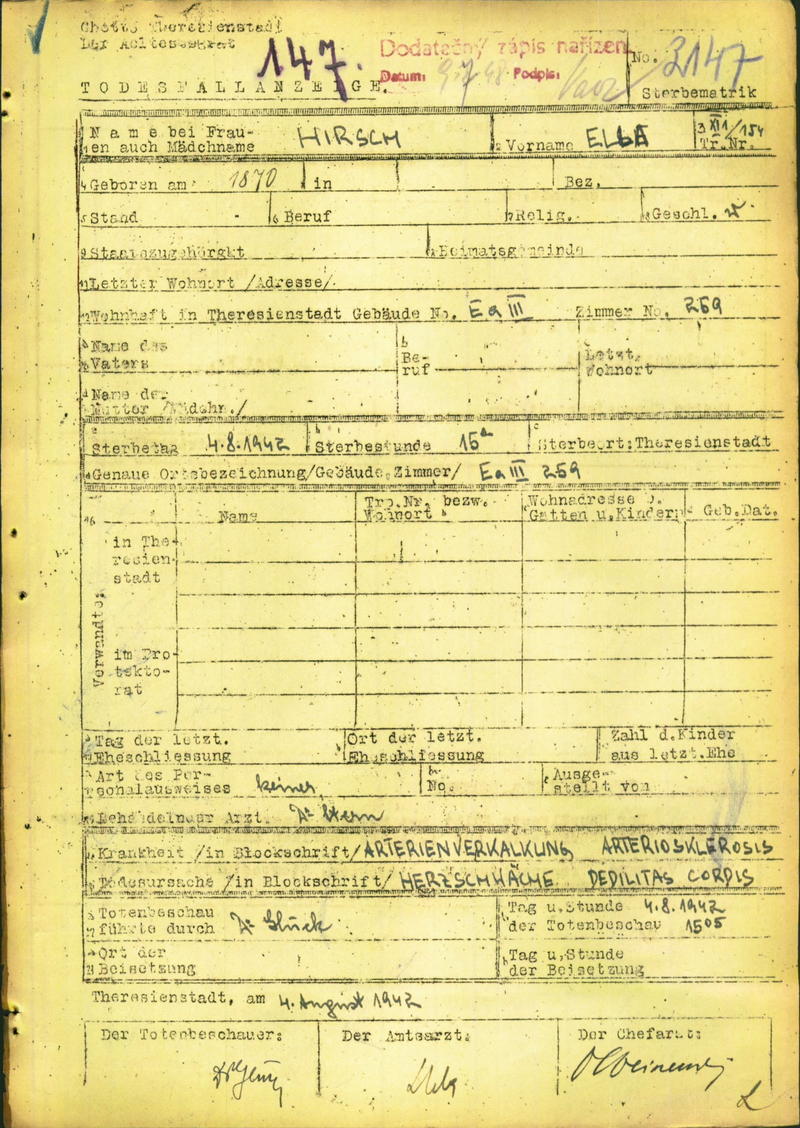 Ghetto Theresienstadt
Der Aeltestenrat
147.
Dodatečný zápis nařízen
Datum: 9. 7. 48 Podpis:
No. 2147
Sterbematrik
TODESFALLANZEIGE.
Name bei Frau-
en auch Mädchname HIRSCH
Vorname ELLA
XII/154
Tr.Nr.
Geboren am 1870 in Bez.
Stand Beruf Relig. Geschl. W
Staatszugehörgkt Heimatsgemeinde
Letzter Wohnort /Adresse/
Wohnhaft in Theresienstadt Gebäude No. Ea III Zimmer No. 269
Name des
Vaters
Be-
ruf
Letzt.
Wohnort
Name der
Mutter /Mädchn./
Sterbetag 4.8.1942 Sterbestunde 15 Sterbeort: Theresienstadt
Genaue Ortsbezeichnung/Gebäude, Zimmer/ Ea III 269
Verwandte
Name
Trp.Nr. bezw.
Wohnort
Wohnadresse b.
Gatten u. Kindern
Geb.Dat.
in The-
resien-
stadt
im Pro-
tekto-
rat
Tag der letzt.
Eheschliessung
Ort der letzt.
Eheschliessung
Zahl d.Kinder
aus letzt.Ehe
Art des Per-
sonalausweises keiner
No.
Ausge-
stellt von
Behandelnder Arzt. Dr Stern
Krankheit /in Blockschrift/ ARTERIENVERKALKUNG ARTERIOSKLEROSIS
Todesursache /in Blockschrift/ HERZSCHWÄCHE DEPILITAS CORDIS
Totenbeschau
führte durch Dr
Tag u.Stunde 4.8.1942
der Totenbeschau 15 05
Ort der
Beisetzung
Tag u.Stunde
der Beisetzung
Theresienstadt, am 4. August 1942
Der Totenbeschauer:
Der Amtsarzt:
Der Chefarzt: